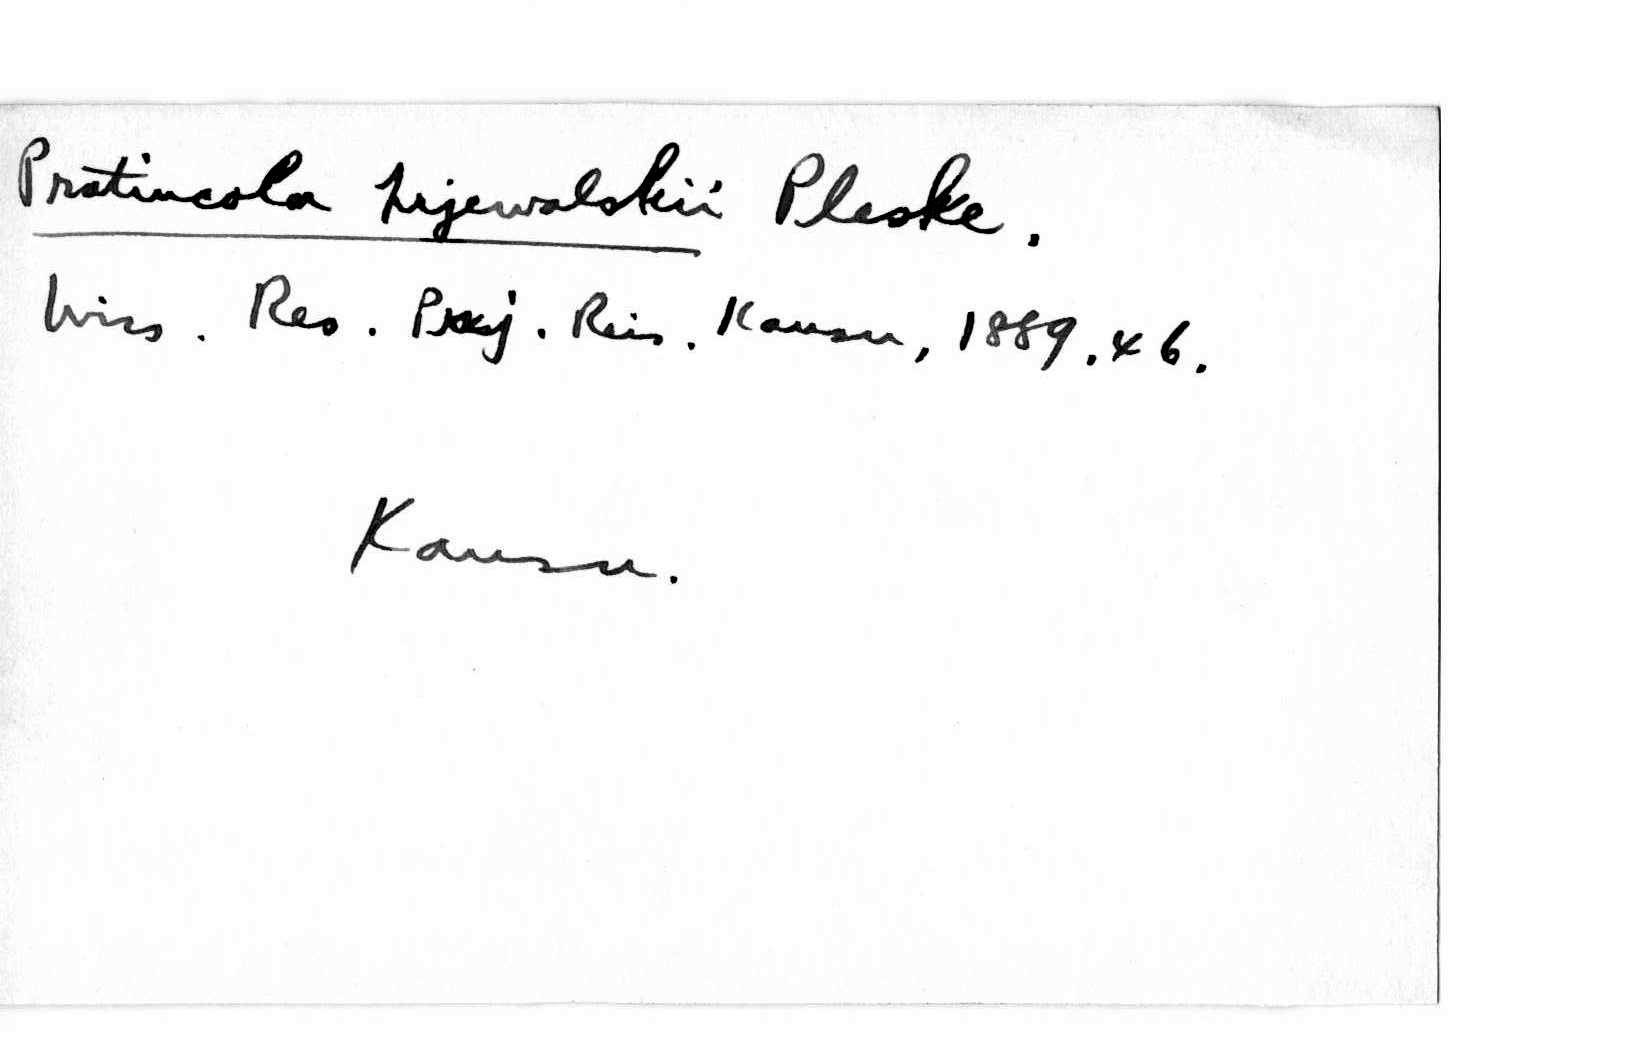 Pratincola prjewalskii Pleske.
Wiss. Res. Przj. Reis. Kansu, 1889. 46.
Kansu.